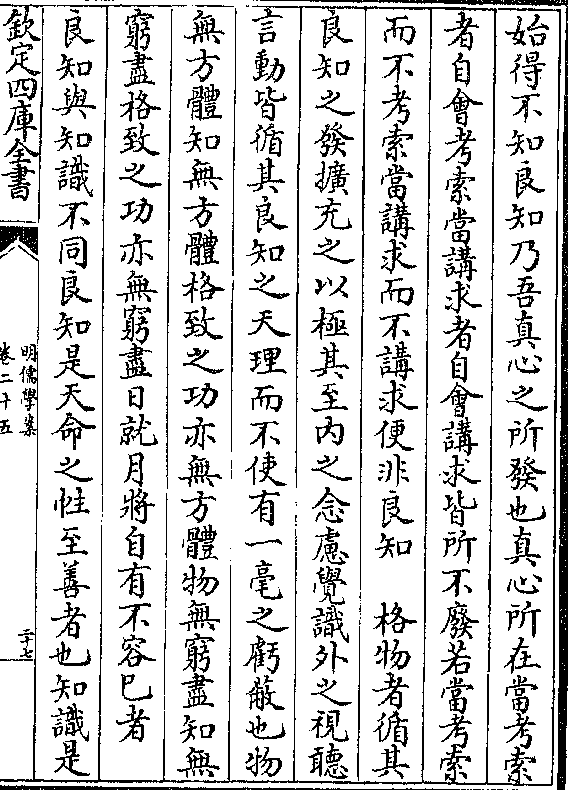 始得不知良知乃吾真心之所發也真心所在當考索
者自會考索當講求者自會講求皆所不廢若當考索
而不考索當講求而不講求便非良知　格物者循其
良知之發擴充之以極其至内之念慮覺識外之視聽
言動皆循其良知之天理而不使有一毫之虧蔽也物
無方體知無方體格致之功亦無方體物無窮盡知無
窮盡格致之功亦無窮盡日就月將自有不容已者
良知與知識不同良知是天命之性至善者也知識是
欽定四庫全書
明儒學案
卷二十五
二十七